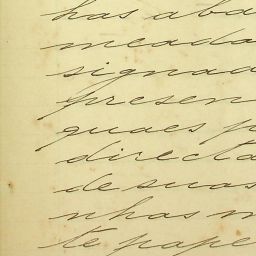 has aba
meada
signad
presen
quaes p
directa
de suas
nhas m
te pape